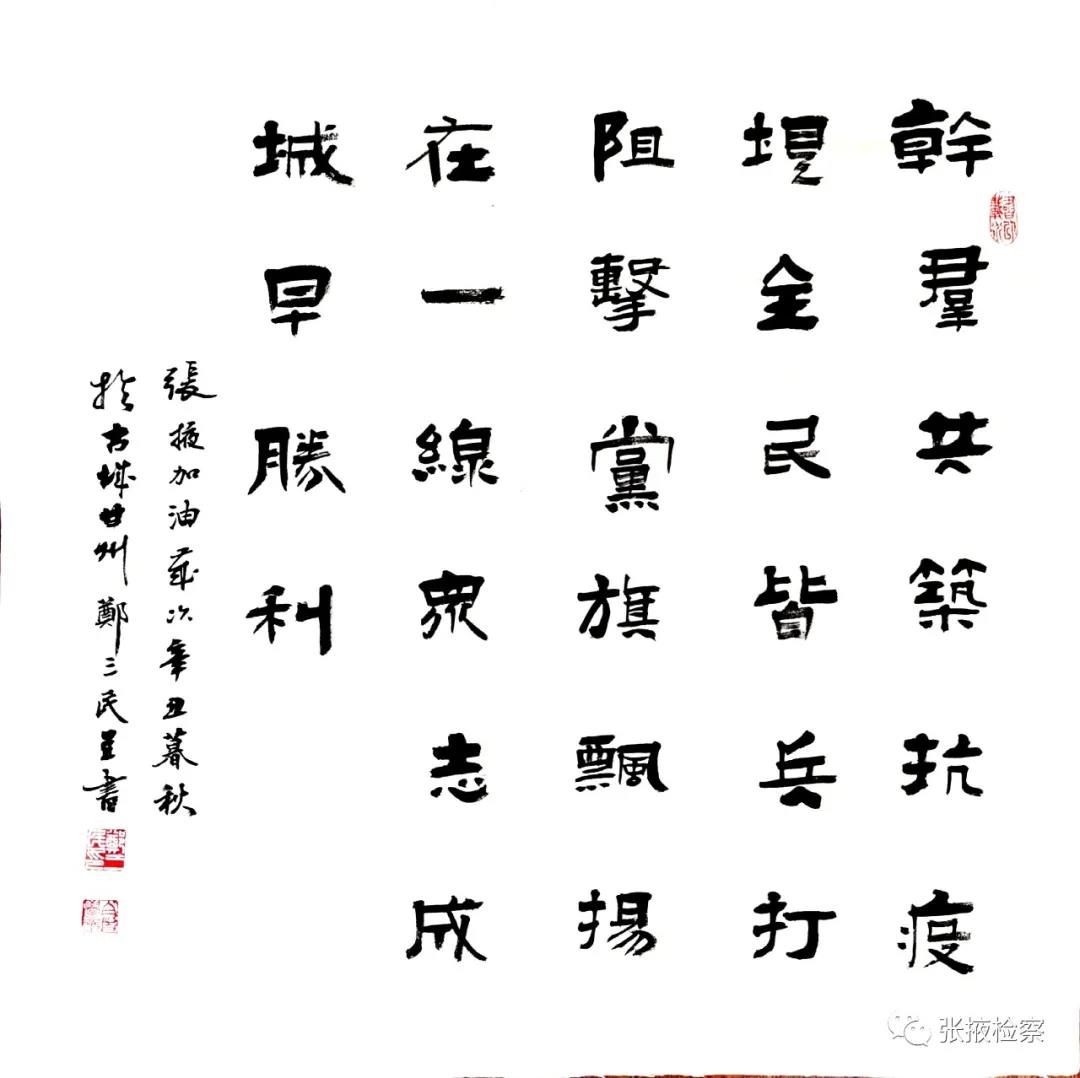 幹羣共築抗疫
垻全民皆兵打
阻擊黨旗飄揚
在一線衆志成
城早勝利
張掖加油歲次辛丑暮秋
於古城甘州鄭三民書
张掖检察